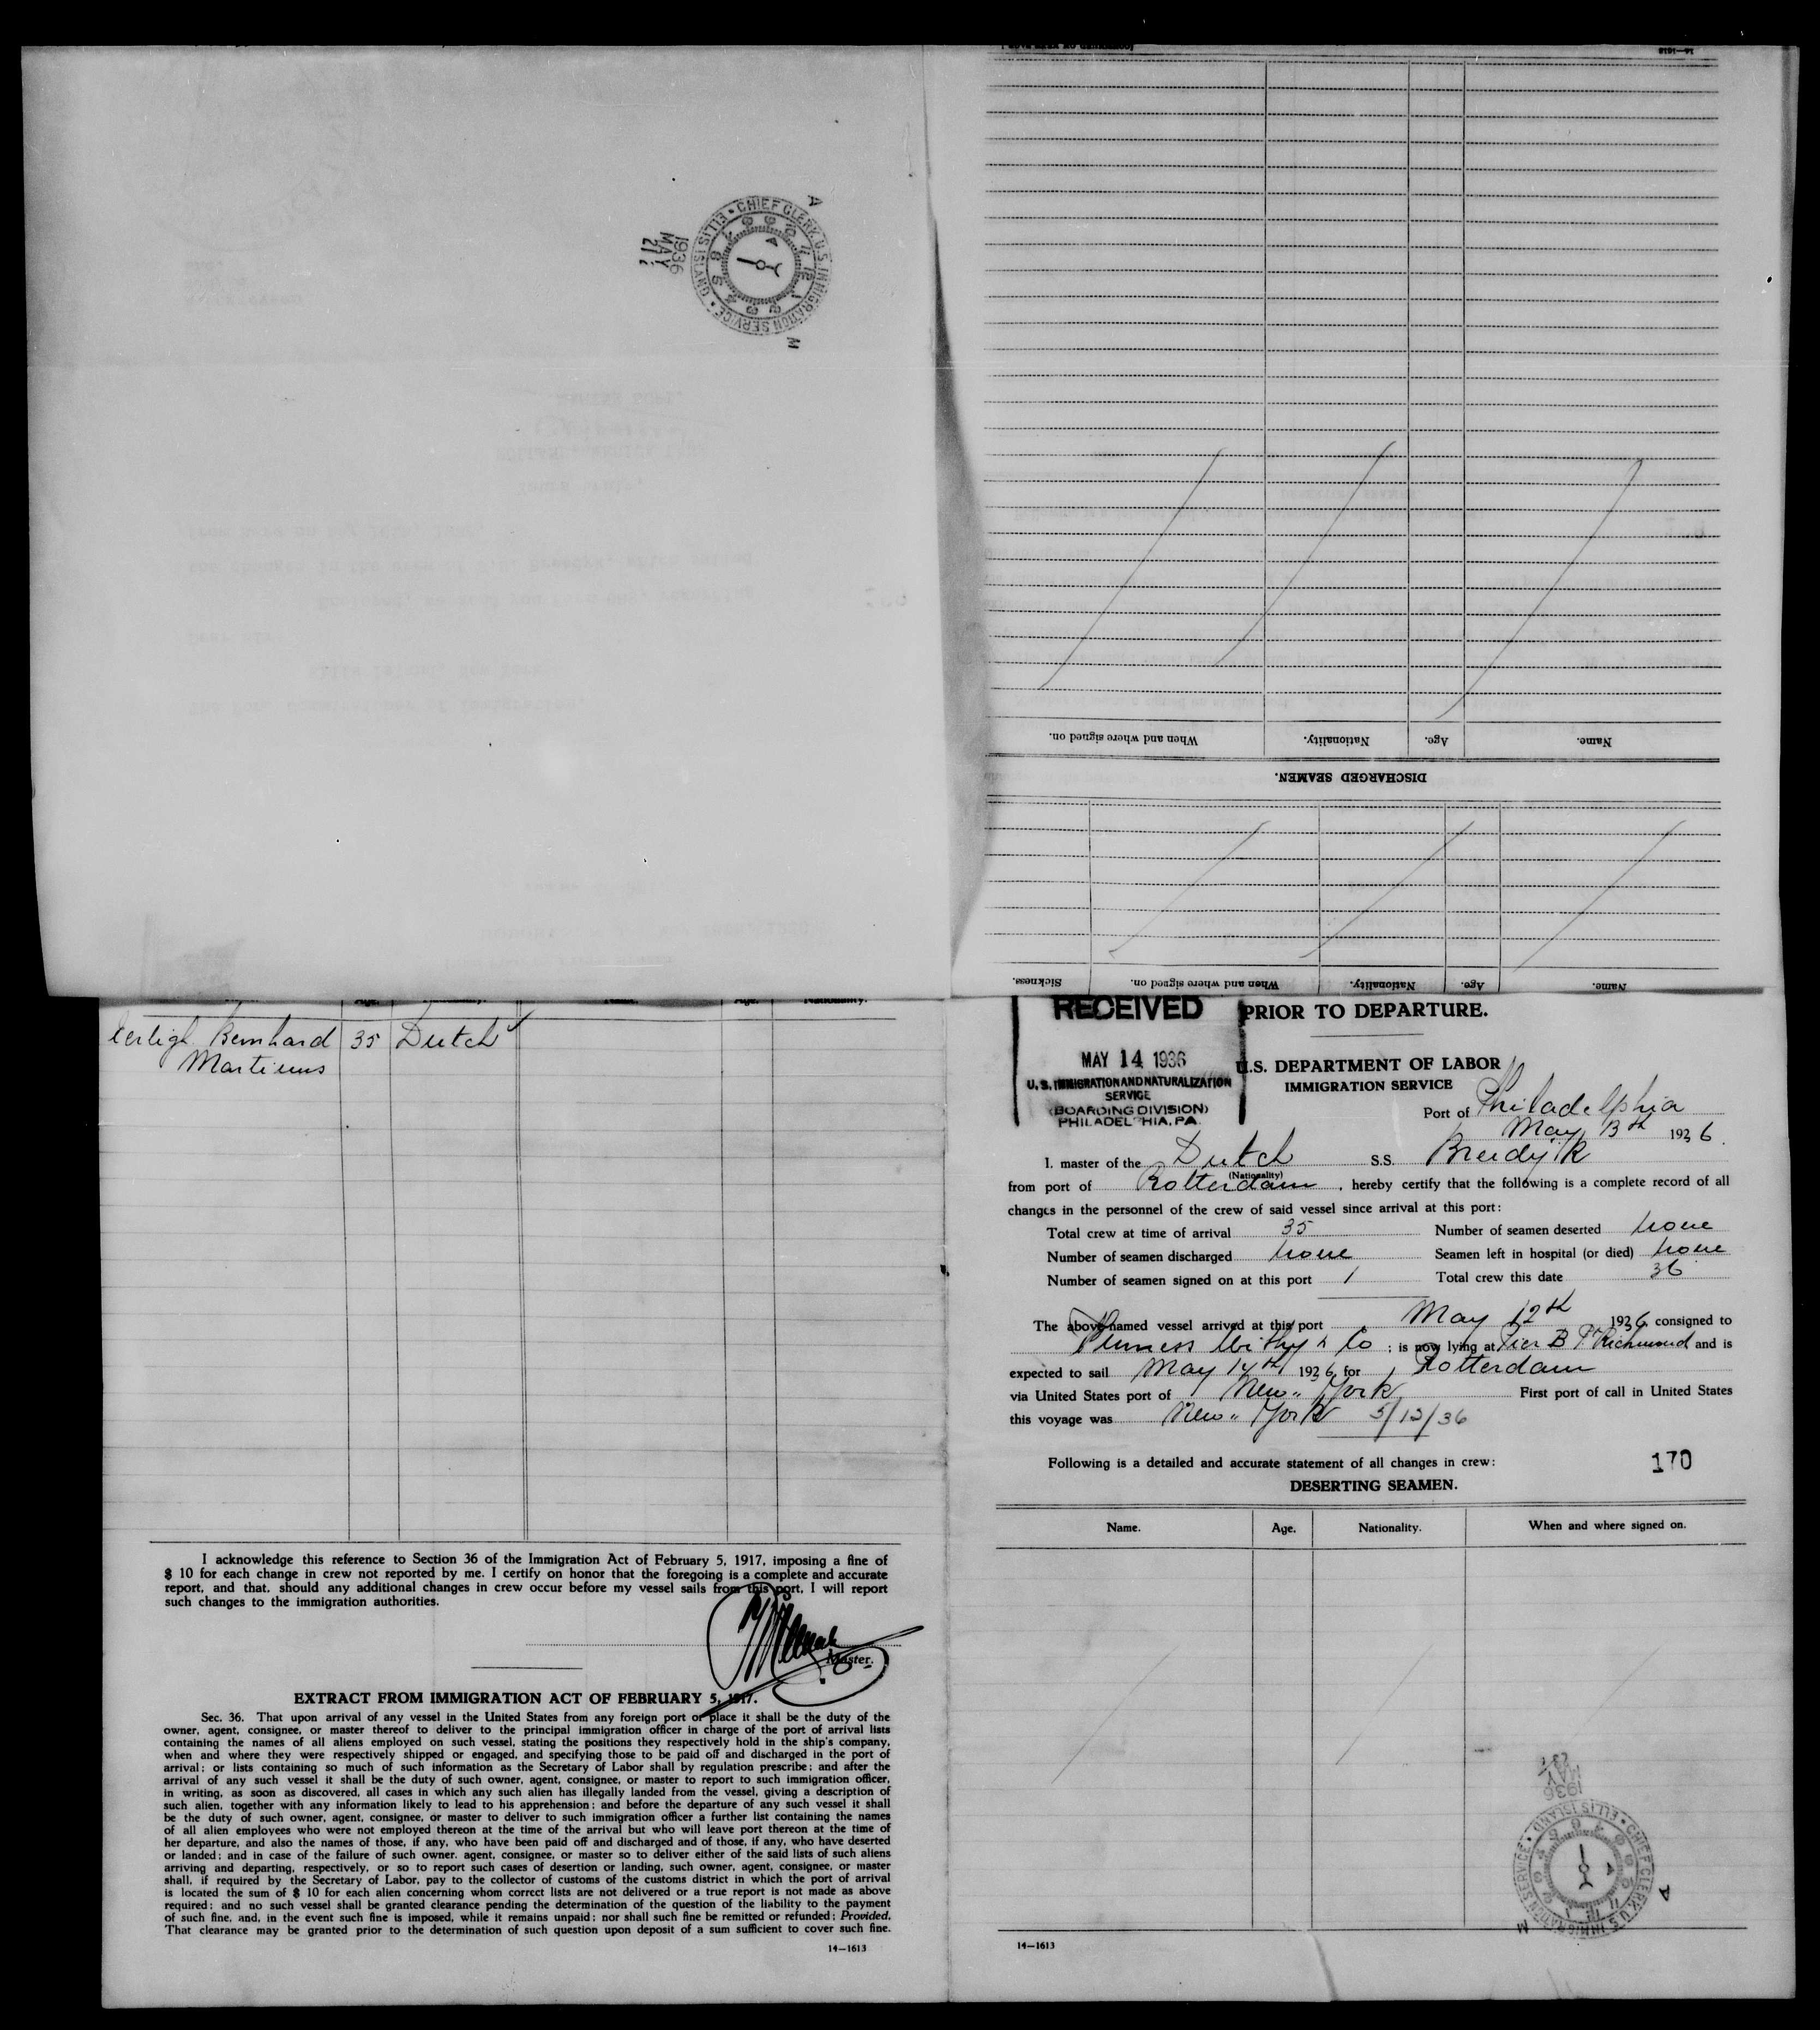 14—1613
Name. Age. Nationality. When and where signed on.
DISCHARGED SEAMEN.
Name. Age. Nationality. When and where signed on. Sickness.
CHIEF CLERK, U.S. IMMIGRATION SERVICE • ELLIS ISLAND •
1936
MAY
21
A
M
Age. Name. Age. Nationality.
Bernhard 35 Dutch
Martinus
I acknowledge this reference to Section 36 of the Immigration Act of February 5, 1917, imposing a fine of
$ 10 for each change in crew not reported by me. I certify on honor that the foregoing is a complete and accurate
report, and that, should any additional changes in crew occur before my vessel sails from this port, I will report
such changes to the immigration authorities.
Master.
EXTRACT FROM IMMIGRATION ACT OF FEBRUARY 5, 1917.
Sec. 36. That upon arrival of any vessel in the United States from any foreign port or place it shall be the duty of the
owner, agent, consignee, or master thereof to deliver to the principal immigration officer in charge of the port of arrival lists
containing the names of all aliens employed on such vessel, stating the positions they respectively hold in the ship's company,
when and where they were respectively shipped or engaged, and specifying those to be paid off and discharged in the port of
arrival; or lists containing so much of such information as the Secretary of Labor shall by regulation prescribe; and after the
arrival of any such vessel it shall be the duty of such owner, agent, consignee, or master to report to such immigration officer,
in writing, as soon as discovered, all cases in which any such alien has illegally landed from the vessel, giving a description of
such alien, together with any information likely to lead to his apprehension; and before the departure of any such vessel it shall
be the duty of such owner, agent, consignee, or master to deliver to such immigration officer a further list containing the names
of all alien employees who were not employed thereon at the time of the arrival but who will leave port thereon at the time of
her departure, and also the names of those, if any, who have been paid off and discharged and of those, if any, who have deserted
or landed; and in case of the failure of such owner, agent, consignee, or master so to deliver either of the said lists of such aliens
arriving and departing, respectively, or so to report such cases of desertion or landing, such owner, agent, consignee, or master
shall, if required by the Secretary of Labor, pay to the collector of customs of the customs district in which the port of arrival
is located the sum of $ 10 for each alien concerning whom correct lists are not delivered or a true report is not made as above
required; and no such vessel shall be granted clearance pending the determination of the question of the liability to the payment
of such fine, and, in the event such fine is imposed, while it remains unpaid; nor shall such fine be remitted or refunded; Provided,
That clearance may be granted prior to the determination of such question upon deposit of a sum sufficient to cover such fine.
14—1613
RECEIVED
MAY 14 1936
U.S. IMMIGRATION AND NATURALIZATION
SERVICE
(BOARDING DIVISION)
PHILADELPHIA, PA.
PRIOR TO DEPARTURE.
U.S. DEPARTMENT OF LABOR
IMMIGRATION SERVICE
Port of Philadelphia
May 13th 1936.
I, master of the Dutch S.S. Breedijk
(Nationality)
from port of Rotterdam, hereby certify that the following is a complete record of all
changes in the personnel of the crew of said vessel since arrival at this port:
Total crew at time of arrival 35 Number of seamen deserted none
Number of seamen discharged none Seamen left in hospital (or died) none
Number of seamen signed on at this port 1 Total crew this date 36
The above-named vessel arrived at this port May 12th 1936, consigned to
Furness Withy & Co; is now lying at Pier B Pt Richmond and is
expected to sail May 14th 1936, for Rotterdam
via United States port of New-York First port of call in United States
this voyage was New-York 5/12/36
Following is a detailed and accurate statement of all changes in crew: 170
DESERTING SEAMEN.
Name. Age. Nationality. When and where signed on.
MAY
1936
CHIEF CLERK, U.S. IMMIGRATION SERVICE • ELLIS ISLAND •
A
M
14—1613